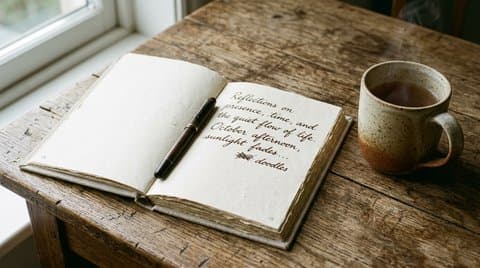 Reflections on
presence, time, and
the quiet flow of life.
October afternoon,
sunlight fades...
doodles